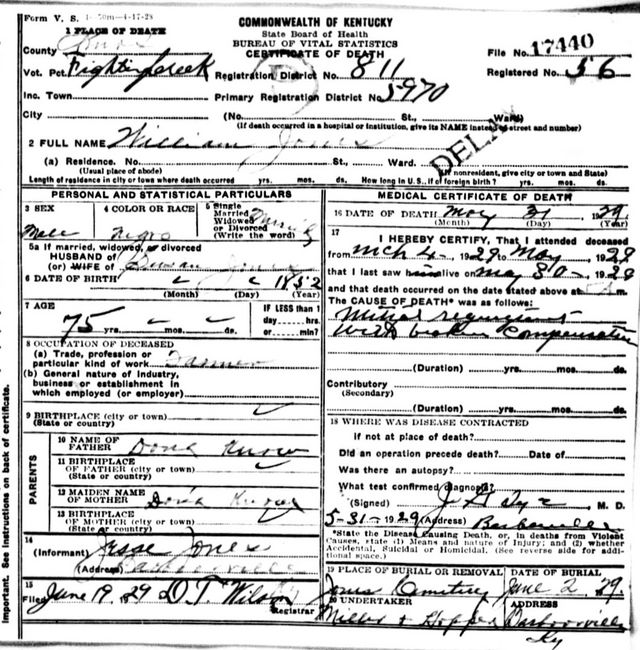 Form V. S. 1-50m-4-17-28
COMMONWEALTH OF KENTUCKY
State Board of Health
BUREAU OF VITAL STATISTICS
CERTIFICATE OF DEATH
1 PLACE OF DEATH
County Knox
File No. 17440
Vot. Pct. Fighting Creek Registration District No. 811 Registered No. 56
Inc. Town Primary Registration District No. 5970
City (No. St., Ward)
(If death occurred in a hospital or institution, give its NAME instead of street and number)
2 FULL NAME William Jones
DELAY
(a) Residence. No. St., Ward.
(Usual place of abode) (If nonresident, give city or town and State)
Length of residence in city or town where death occurred yrs. mos. ds. How long in U.S., if of foreign birth? yrs. mos. ds.
PERSONAL AND STATISTICAL PARTICULARS
3 SEX 4 COLOR OR RACE 5 Single Married Widowed or Divorced (Write the word)
Male Negro
5a If married, widowed, or divorced
HUSBAND of
(or) WIFE of Susan Jones
6 DATE OF BIRTH 1852
(Month) (Day) (Year)
7 AGE IF LESS than 1 day ---- hrs. or ---- min.?
75 yrs. mos. ds.
8 OCCUPATION OF DECEASED
(a) Trade, profession or particular kind of work Farmer
(b) General nature of Industry, business or establishment in which employed (or employer)
9 BIRTHPLACE (city or town)
(State or country)
PARENTS
10 NAME OF FATHER Dont Know
11 BIRTHPLACE OF FATHER (city or town)
(State or country)
12 MAIDEN NAME OF MOTHER Dont Know
13 BIRTHPLACE OF MOTHER (city or town)
(State or country)
14
(Informant) Jesse Jones
(Address) Barbourville
15
Filed June 19, 29 D.T. Wilson
MEDICAL CERTIFICATE OF DEATH
16 DATE OF DEATH May 31 1929
(Month) (Day) (Year)
17
I HEREBY CERTIFY, That I attended deceased
from Mch 4 - 1929 to May 1929
that I last saw him alive on May 30 - 1929
and that death occurred on the date stated above at m.
The CAUSE OF DEATH* was as follows:
Mitral regurgitant
with broken compensation
(Duration) yrs. mos. ds.
Contributory
(Secondary)
(Duration) yrs. mos. ds.
18 WHERE WAS DISEASE CONTRACTED
If not at place of death?
Did an operation precede death? Date of
Was there an autopsy?
What test confirmed diagnosis?
(Signed) M. D.
5-31-1929 (Address) Barbourville
*State the Disease Causing Death, or, in deaths from Violent
Causes, state (1) Means and nature of Injury; and (2) whether
Accidental, Suicidal or Homicidal. (See reverse side for addi-
tional space.)
19 PLACE OF BURIAL OR REMOVAL DATE OF BURIAL
Jones Cemetery June 2, 29.
20 UNDERTAKER ADDRESS
Miller & Hopper Barbourville
Ky
Important. See instructions on back of certificate.